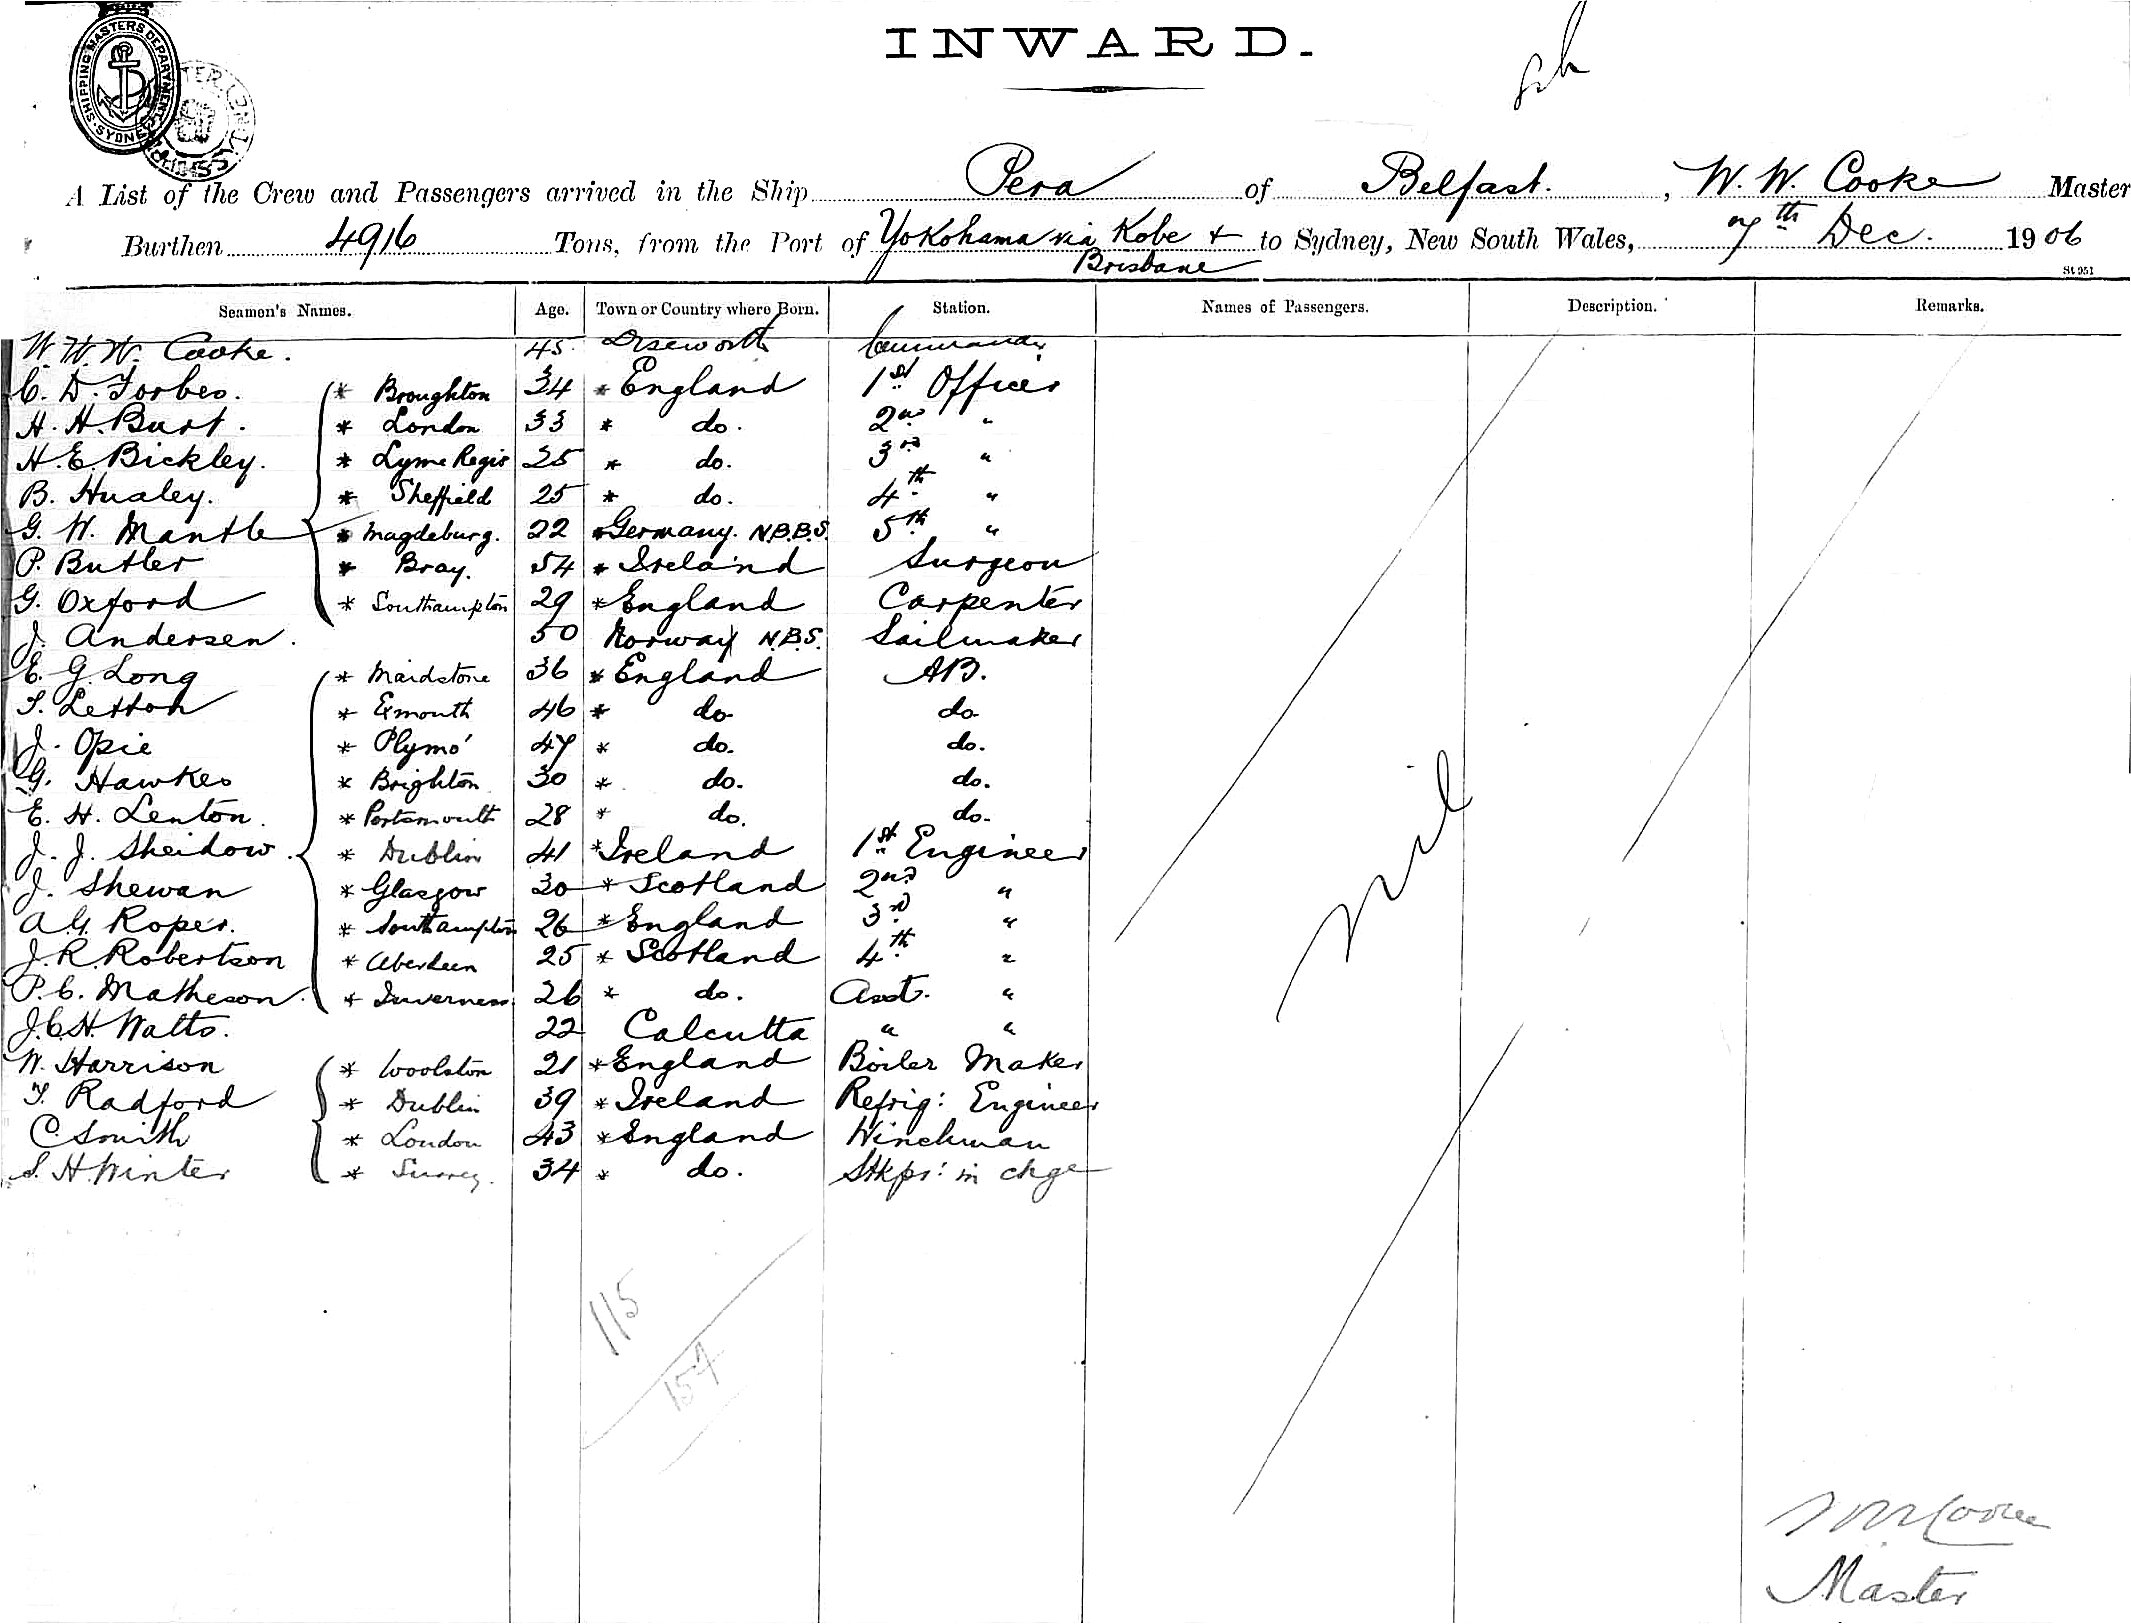 SHIPPING MASTERS DEPARTMENT SYDNEY
INWARD.
A List of the Crew and Passengers arrived in the Ship Pera of Belfast. , W. W. Cooke Master
Burthen 4916 Tons, from the Port of Yokohama via Kobe + to Sydney, New South Wales, 7th Dec. 1906
Brisbane
St 951
Seamen's Names. Age. Town or Country where Born. Station. Names of Passengers. Description. Remarks.
W. W. W. Cooke. 45 Diseworth Commander
C. D. Forbes. * Broughton 34 * England 1st Officer
H. H. Burt. * London 33 * do. 2nd "
H. E. Bickley. * Lyme Regis 25 * do. 3rd "
B. Hualey. * Sheffield 25 * do. 4th "
G. W. Mantle * Magdeburg. 22 * Germany. N.B.B.S. 5th "
P. Butler * Bray. 54 * Ireland Surgeon
G. Oxford * Southampton 29 * England Carpenter
J. Andersen. 50 Norway N.B.S. Sailmaker
E. G. Long * Maidstone 36 * England AB.
* Exmouth 46 * do do
J. Opie * Plymo' 47 * do. do.
G. Hawkes * Brighton 30 * do. do.
E. H. Lenton. * Portsmouth 28 * do. do.
J. J. Sheidow. * Dublin 41 * Ireland 1st Engineer
J. Shewan * Glasgow 30 * Scotland 2nd "
A. G. Roper. * Southampton 26 * England 3rd "
J. R. Robertson * Aberdeen 25 * Scotland 4th "
P. C. Matheson. * Inverness 26 * do. Asst. "
J.C.H. Watts. 22 Calcutta " "
W. Harrison * Woolston 21 * England Boiler Maker
T. Radford * Dublin 39 * Ireland Refrig: Engineer
C. Smith * London 43 * England Winchman
S. H. Winter * Surrey. 34 * do. Stkpr: in chge
nil
115
157
W W Cooke
Master